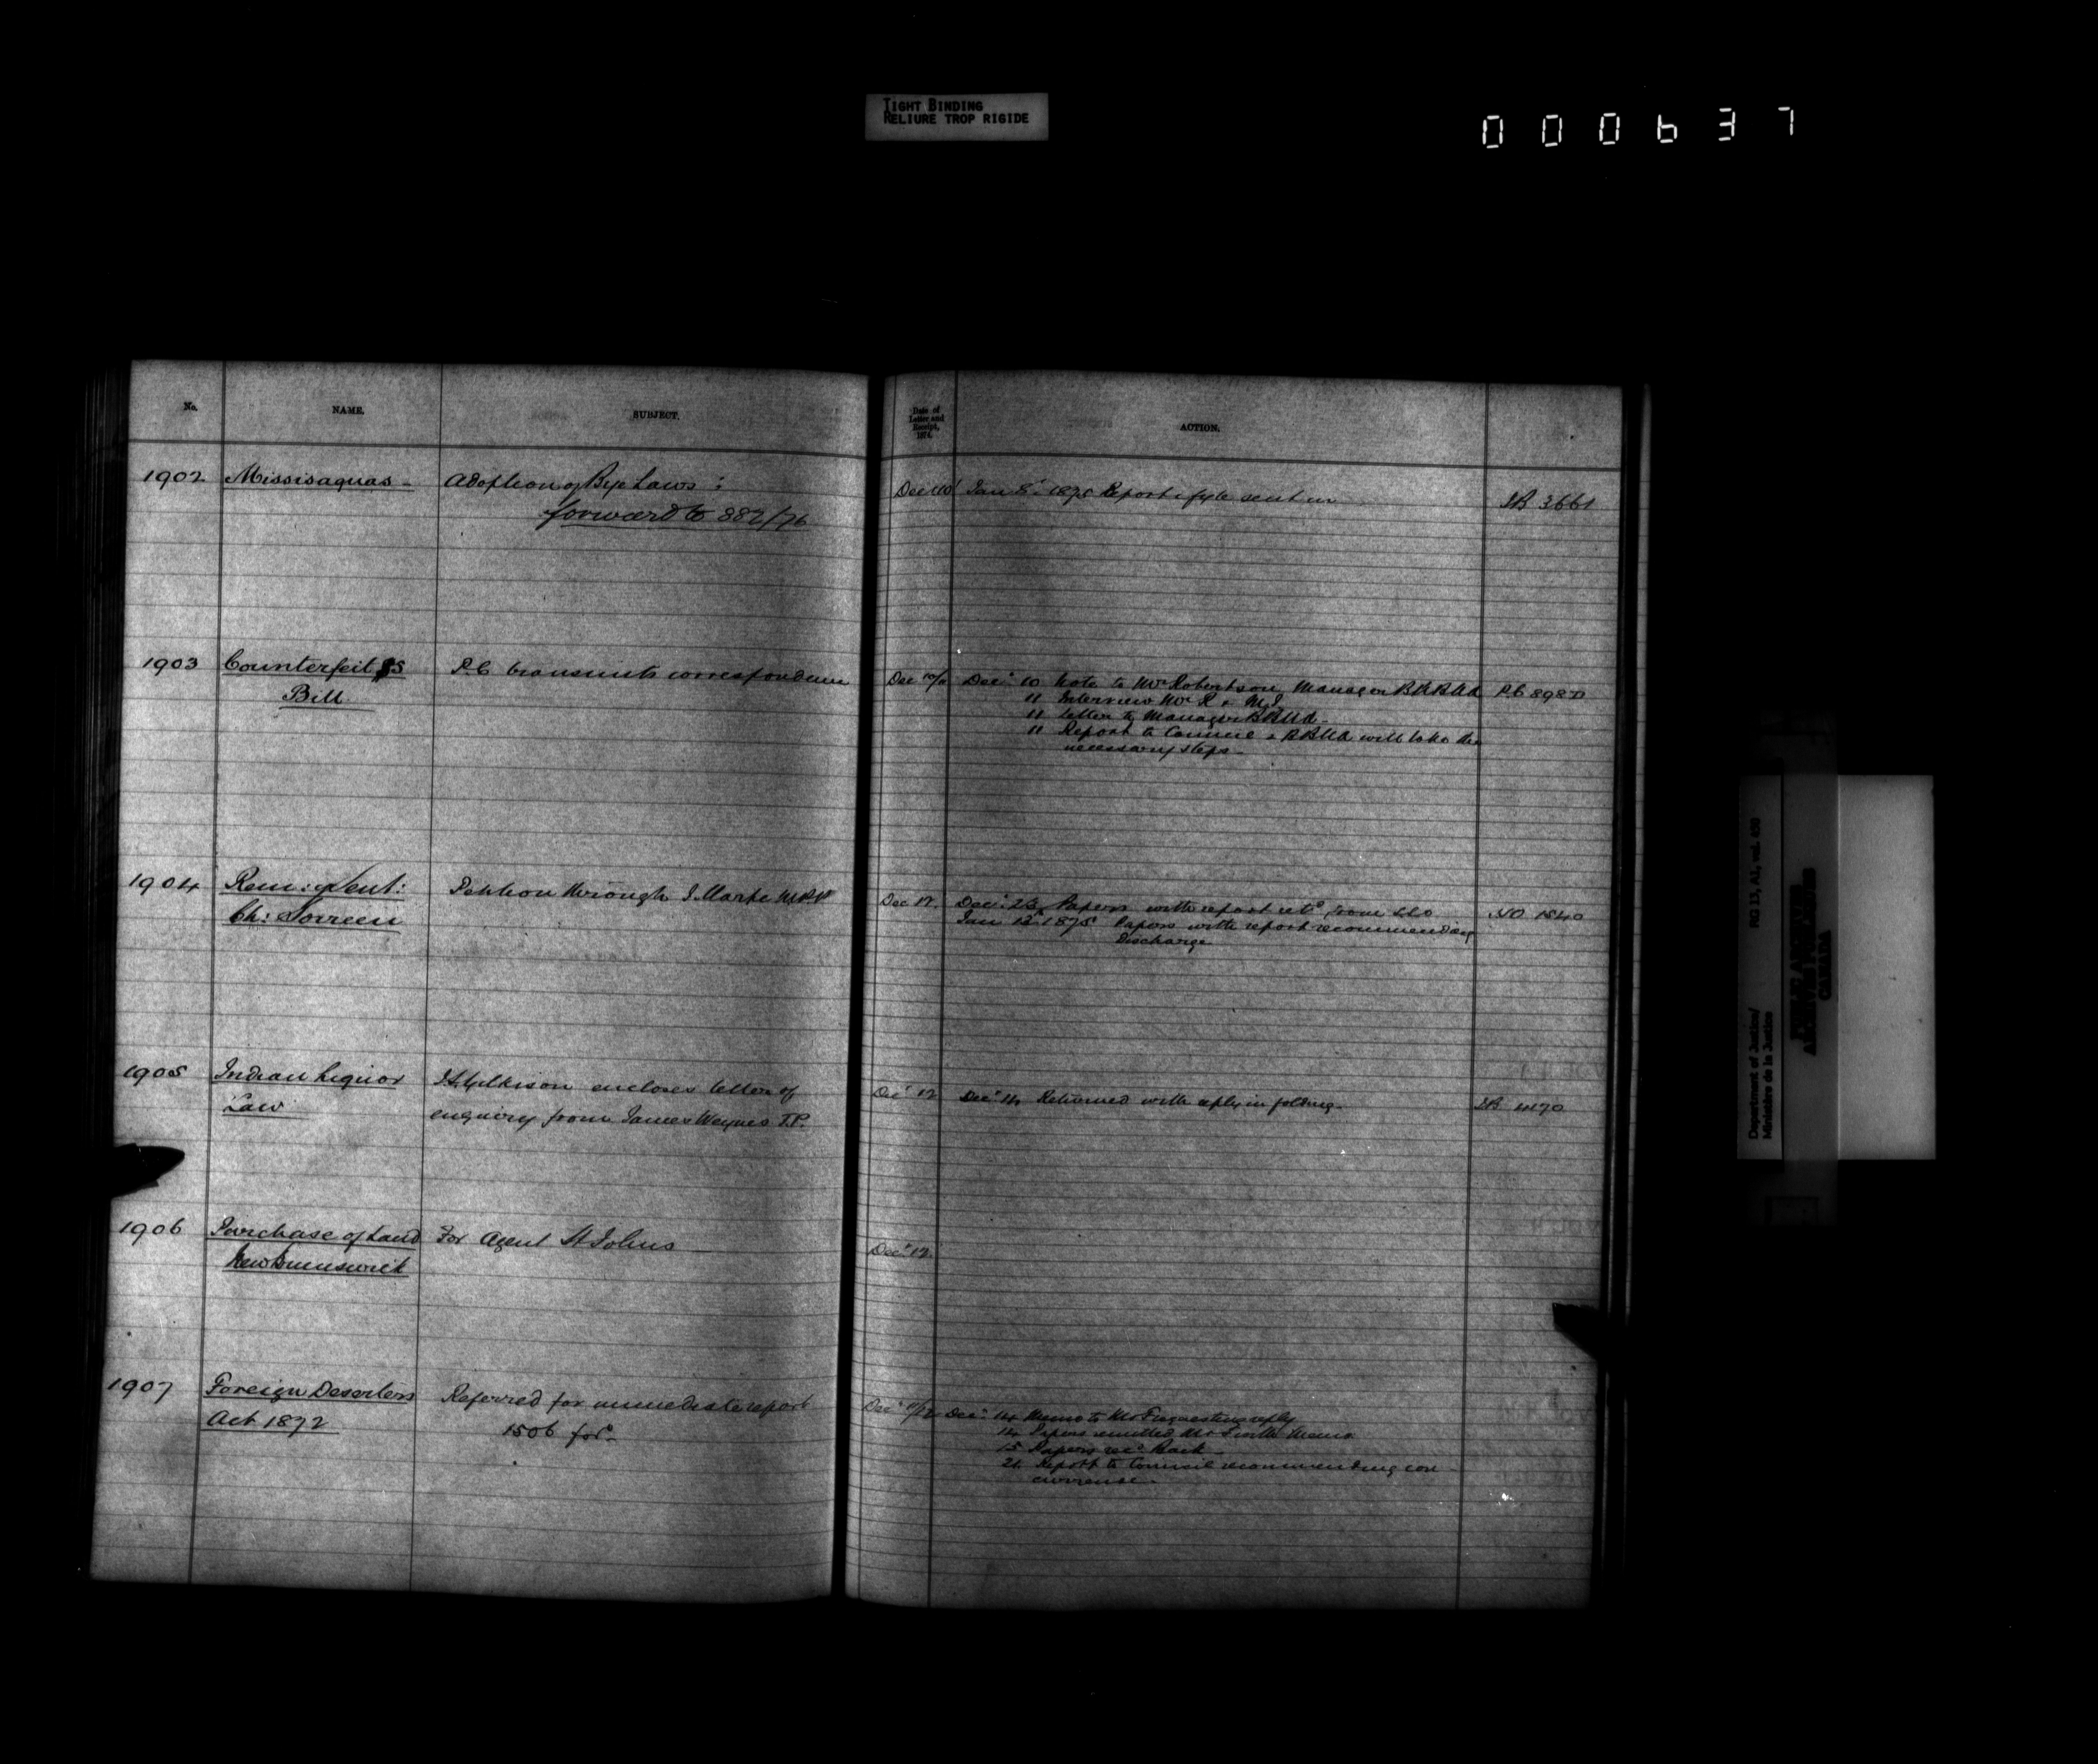 TIGHT BINDING
RELIURE TROP RIGIDE
000637
No.
NAME.
SUBJECT.
Date of
Letter and
Receipt,
1874.
ACTION.
1902 Missisaquas - Adoption of Bye Laws :
forward to 882/76
Dec 10 Jan 8. 1875 Report & fyle sent in
3661
1903 Counterfeit $5
Bill
P.C. transmits correspondence
Dec 10 Note to Mr Robertson Manager BKBNA
11 Interview Mr R & M.J.
11 Letter to Manager BBNA -
11 Report to Council & BBNA will take the
necessary steps -
PC 898D
1904 Rem: of Sent:
Ch: Sorreen
Petition through
Dec 12. Dec. 23 Papers with report retd from
Jan 12 1875 Papers with report recommending
Discharge
1540
1905 Indian Liquor
Law
J. Gilkison encloses letter of
enquiry from James Weynes J.P.
Dec 12 Dec 14 Returned with reply in folding -
1906 Purchase of Land
New Brunswick
For Agent St Johns
Dec 12.
1907 Foreign Deserters
Act 1872
Referred for immediate report
1506 for
Dec 11/12 Dec. 14 Memo to Mr F requesting reply
14 Papers remitted Mr F with Memo
15 Papers recd Back -
21 Report to Council recommending con
currence -
Department of Justice/
Ministère de la Justice
RG 13, A1, vol. 430
PUBLIC ARCHIVES
ARCHIVES PUBLIQUES
CANADA